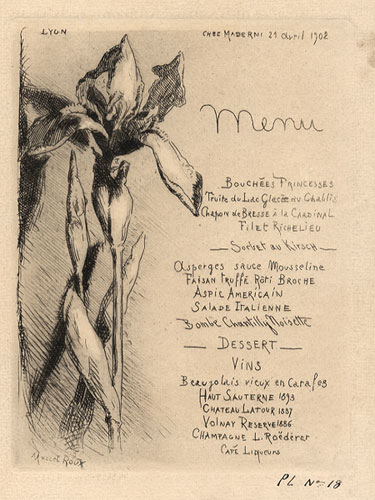 LYON
CHEZ MADERNI 21 avril 1902
Menu
BOUCHÉES PRINCESSES
Truite du Lac Glacée au Chablis
Chapon de BRESSE à la CARDINAL
FILET RICHELIEU
— Sorbet au Kirsch —
Asperges sauce Mousseline
FAISAN truffé Rôti BROCHE
ASPIC AMERICAIN
SALADE ITALIENNE
Bombe Chantilly Noisette
— DESSERT —
VINS
Beaujolais vieux en Carafes
HAUT SAUTERNE 1893
CHATEAU LATOUR 1887
VOLNAY RESERVE 1886
CHAMPAGNE L. Roëderer
Café Liqueurs
Marcel Roux
PL No 18